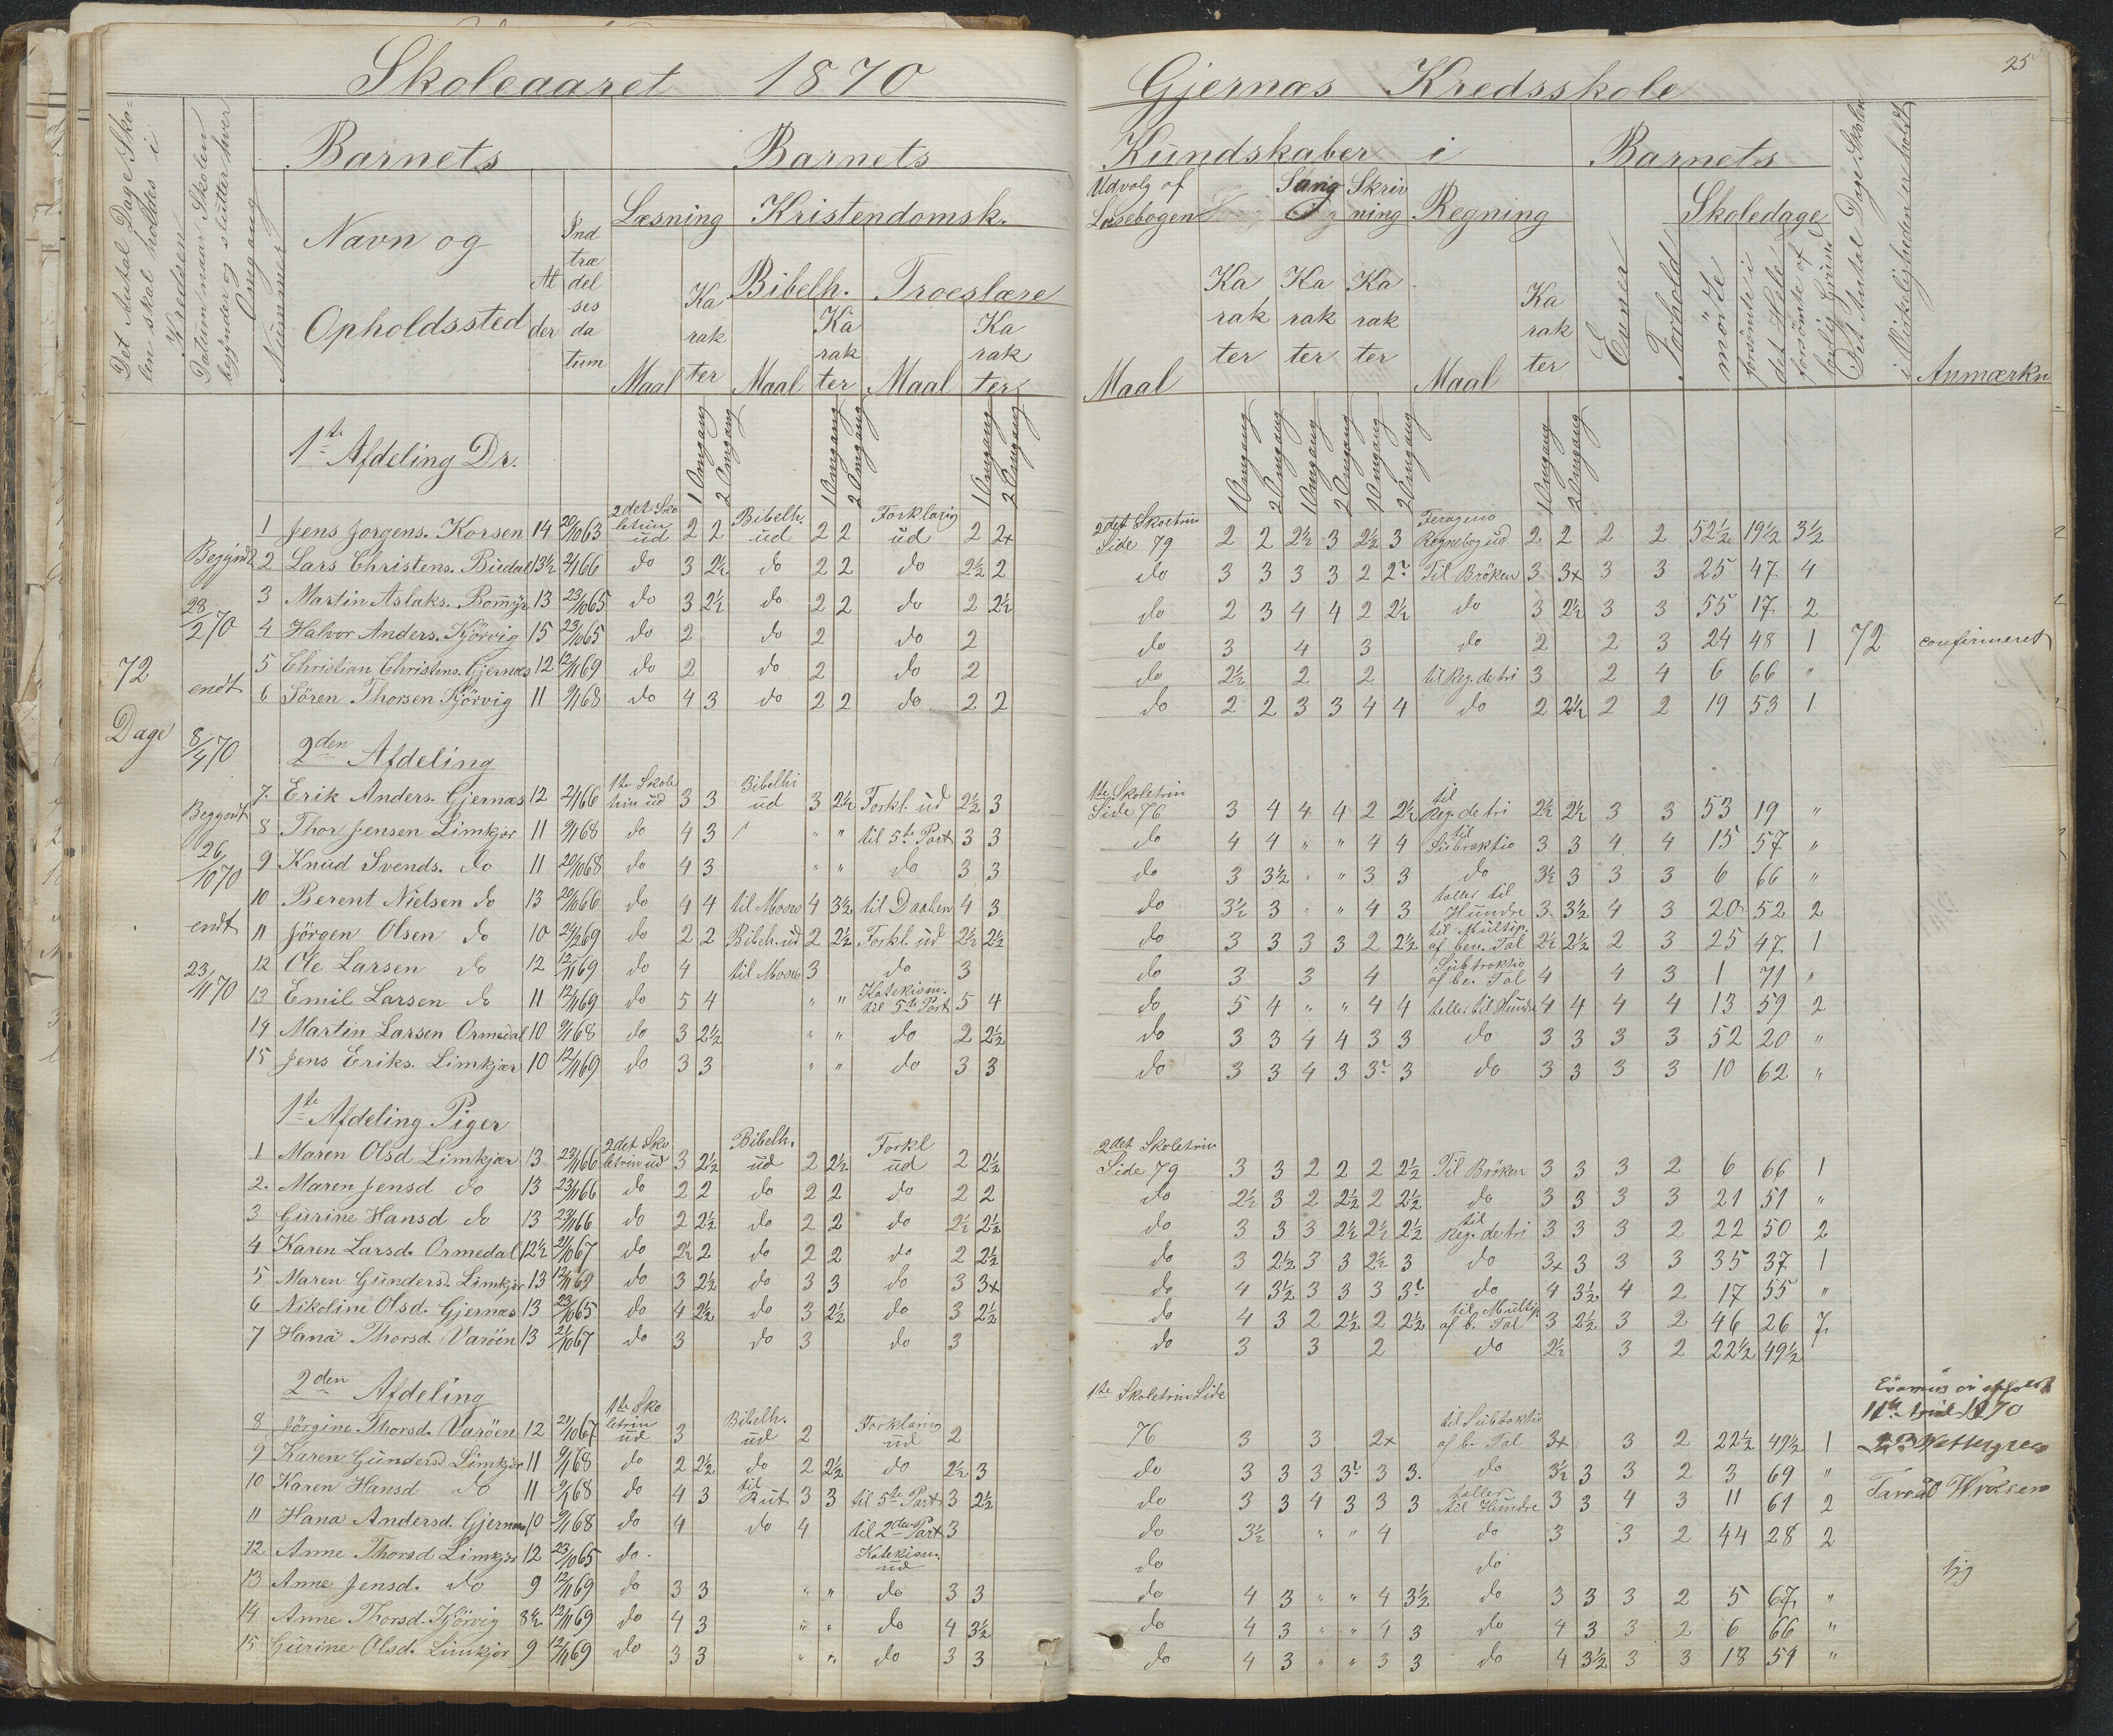 Skoleaaret 1870
Det Antal Dage Sko-
len skal holdes i
Kredsen
Datum naar Skolen
begynder og slutter hver
Omgang
Nummer
Barnets
Navn og
Opholdssted
Al
der
Ind
træ
del
ses
da
tum
Barnets
Læsning Kristendomsk.
Bibelh. Troeslære
Maal
Ka
rak
ter
Maal
Ka
rak
ter
Maal
Ka
rak
ter
1 Omgang
2 Omgang
1 Omgang
2 Omgang
1 Omgang
2 Omgang
72
Dage
Begyndt
28/2 70
endt
8/4 70
Begyndt
26/10 70
endt
23/11 70
1te Afdeling Dr.
1 Jens Jørgens. Korsen 14 20/10 63 2det Sko letrin ud 2 2 Bibelh. ud 2 2 Forklaring ud 2 2x
2 Lars Christens. Buedal 13½ 2/1 66 do 3 2½ do 2 2 do 2½ 2
3 Martin Aslaks. Bomyr 13 23/10 65 do 3 2½ do 2 2 do 2 2½
4 Halvor Anders. Kjörvig 15 23/10 65 do 2 do 2 do 2
5 Christian Christens. Gjernæs 12 12/11 69 do 2 do 2 do 2
6 Sören Thorsen Kjörvig 11 9/1 68 do 4 3 do 2 2 do 2 2
2den Afdeling
7. Erik Anders. Gjernæs 12 2/1 66 1te Skole trin ud 3 3 Bibelhi ud 3 2½ Forkl. ud 2½ 3
8 Thor Jensen Limkjær 11 9/1 68 do 4 3 " " til 5te Part 3 3
9 Knud Svends. do 11 20/10 68 do 4 3 " " do 3 3
10 Berent Nielsen do 13 20/10 66 do 4 4 til Moses 4 3½ til Daaben 4 3
11 Jörgen Olsen do 10 24/2 69 do 2 2 Bibelh. ud 2 2½ Forkl. ud 2½ 2½
12 Ole Larsen do 12 12/11 69 do 4 til Moses 3 do 3
13 Emil Larsen do 11 12/11 69 do 5 4 " " Katekism. til 5te Part 5 4
14 Martin Larsen Ormedal 10 9/1 68 do 3 2½ " " do 2 2½
15 Jens Eriks. Limkjær 10 12/11 69 do 3 3 " " do 3 3
1te Afdeling Piger
1 Maren Olsd Limkjær 13 23/11 66 2det Sko letrin ud 3 2½ Bibelh. ud 2 2½ Forkl ud 2 2½
2. Maren Jensd do 13 23/11 66 do 2 2 do 2 2 do 2 2
3 Gurine Hansd do 13 23/11 66 do 2 2½ do 2 2 do 2½ 2½
4 Karen Larsd. Ormedal 12½ 21/10 67 do 2½ 2 do 2 2 do 2 2½
5 Maren Gundersd. Limkjær 13 12/11 69 do 3 2½ do 3 3 do 3 3x
6 Nikoline Olsd. Gjernæs 13 23/10 65 do 4 2½ do 3 2½ do 3 2½
7 Hana Thorsd. Varöen 13 21/10 67 do 3 do 3 do 3
2den Afdeling
8 Jörgine Thorsd. Varöen 12 21/10 67 1te Sko letrin ud 3 Bibelh. ud 2 Forklaring ud 2
9 Karen Gundersd Limkjær 11 9/1 68 do 2 2½ do 2 2½ do 2½ 3
10 Karen Hansd do 11 9/1 68 do 4 3 til Rut 3 3 til 5te Part 3 2½
11 Hana Andersd. Gjernæs 10 9/1 68 do 4 do 4 til 2den Part 3
12 Anne Thorsd Limkjær 12 23/10 65 do. Katekism. ud
13 Anne Jensd. do 9 12/11 69 do 3 3 " " do 3 3
14 Anne Thorsd. Kjörvig 8½ 12/11 69 do 4 3 " " do 4 3½
15 Gurine Olsd. Limkjær 9 12/11 69 do 3 3 " " do 3 3
25
Gjernæs Kredsskole
Kundskaber i
Udvalg af
Læsebogen
Sang
Skriv
ning
Regning
Maal
Ka
rak
ter
Ka
rak
ter
Ka
rak
ter
Maal
Ka
rak
ter
Barnets
Evner
Forhold
Skoledage
mödte
forsömte i
det Hele
forsömte af
lovlig Grund
Det Antal Dage Skolen
i Virkeligheden er holdt
Anmærkn
1 Omgang
2 Omgang
1 Omgang
2 Omgang
1 Omgang
2 Omgang
1 Omgang
2 Omgang
2det Skoletrin
Side 79 2 2 2½ 3 2½ 3 Regnebog ud 2 2 2 2 52½ 19½ 3½
do 3 3 3 3 2 2? Til Bröken 3 3x 3 3 25 47 4
do 2 3 4 4 2 2½ do 3 2½ 3 3 55 17 2
do 3 4 3 do 2 2 3 24 48 1 72 confirmeret
do 2½ 2 2 til Reg. de tri 3 2 4 6 66 "
do 2 2 3 3 4 4 do 2 2½ 2 2 19 53 1
1te Skoletrin
Side 76 3 4 4 4 2 2½ til Reg. de tri 2½ 2½ 3 3 53 19 "
do 4 4 " " 4 4 til Subtraktio 3 3 4 4 15 57 "
do 3 3½ " " 3 3 do 3½ 3 3 3 6 66 "
do 3½ 3 " " 4 3 tæller til Hundre 3 3½ 4 3 20 52 2
do 3 3 3 3 2 2½ til Multip. af ben. Tal 2½ 2½ 2 3 25 47 1
do 3 3 4 Subtraktio af be. Tal 4 4 3 1 71 "
do 5 4 " " 4 4 teller til Hundre 4 4 4 4 13 59 2
do 3 3 4 4 3 3 do 3 3 3 3 52 20 "
do 3 3 4 3 3? 3 do 3 3 3 3 10 62 "
2det Skoletrin
Side 79 3 3 2 2 2 2½ Til Bröken 3 3 3 2 6 66 1
do 2½ 3 2 2½ 2 2½ do 3 3 3 3 21 51 "
do 3 3 3 2½ 2½ 2½ til Reg. de tri 3 3 3 2 22 50 2
do 3 2½ 3 3 2½ 3 do 3x 3 3 3 35 37 1
do 4 3½ 3 3 3 3? do 4 3½ 4 2 17 55 "
do 4 3 2 2½ 2 2½ til Multip. af b. Tal 3 2½ 3 2 46 26 7
do 3 3 2 do 2½ 3 2 22½ 49½
1te Skoletrin Side
76 3 3 2x til Subtraktio af b. Tal 3x 3 2 22½ 49½ 1
do 3 3 3 3? 3 3. do 3½ 3 3 2 3 69 "
do 3 3 4 3 3 3 tæller til Hundre 3 3 4 3 11 61 2
do 3½ " " 4 do 3 3 2 44 28 2
do do syg
do 4 3 " " 4 3½ do 3 3 3 2 5 67 "
do 4 3 " " 4 3 do 4 3 3 2 6 66 "
do 4 3 " " 3 3 do 4 3½ 3 3 18 54 "